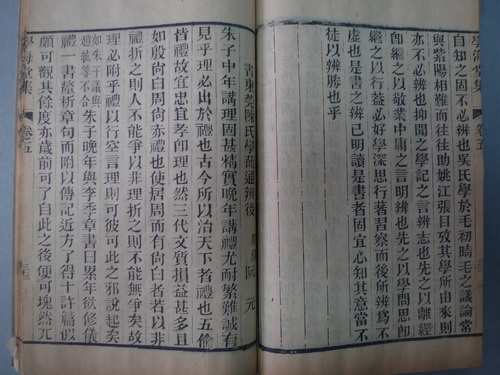 學海堂集 卷五
自知之固不必辨也吳氏學於毛初晴毛之議論常
與紫陽相難而往往助姚江張目攷其學所由來則
亦不必辨也抑聞之學記之言辨志也先之以離經
卽繼之以敬業中庸之言明辨也先之以學問思卽
繼之以行葢必好學深思行著習察而後所辨爲不
虛也是書之辨已明讀是書者固宜心知其意當不
徒以辨勝也乎
書東莞陳氏學蔀通辨後 阮元
朱子中年講理固甚精實晚年講禮尤耐繁難誠有
見乎理必出於禮也古今所以治天下者禮也五倫
皆禮故宜忠宜孝卽理也然三代文質損益甚多且
如殷尚白周尚赤禮也使居周而有尚白者若以非
禮折之則人不能爭以非理折之則不能無爭矣故
理必附乎禮以行空言理則可彼可此之邪說起矣
如朱子議與不合朱子晚年與李季章書曰累年欲修儀
禮一書釐析章句而附以傳記近方了得十許篇似
頗可觀其餘度亦歲前可了自此之後便可塊然兀
學海堂集 卷五